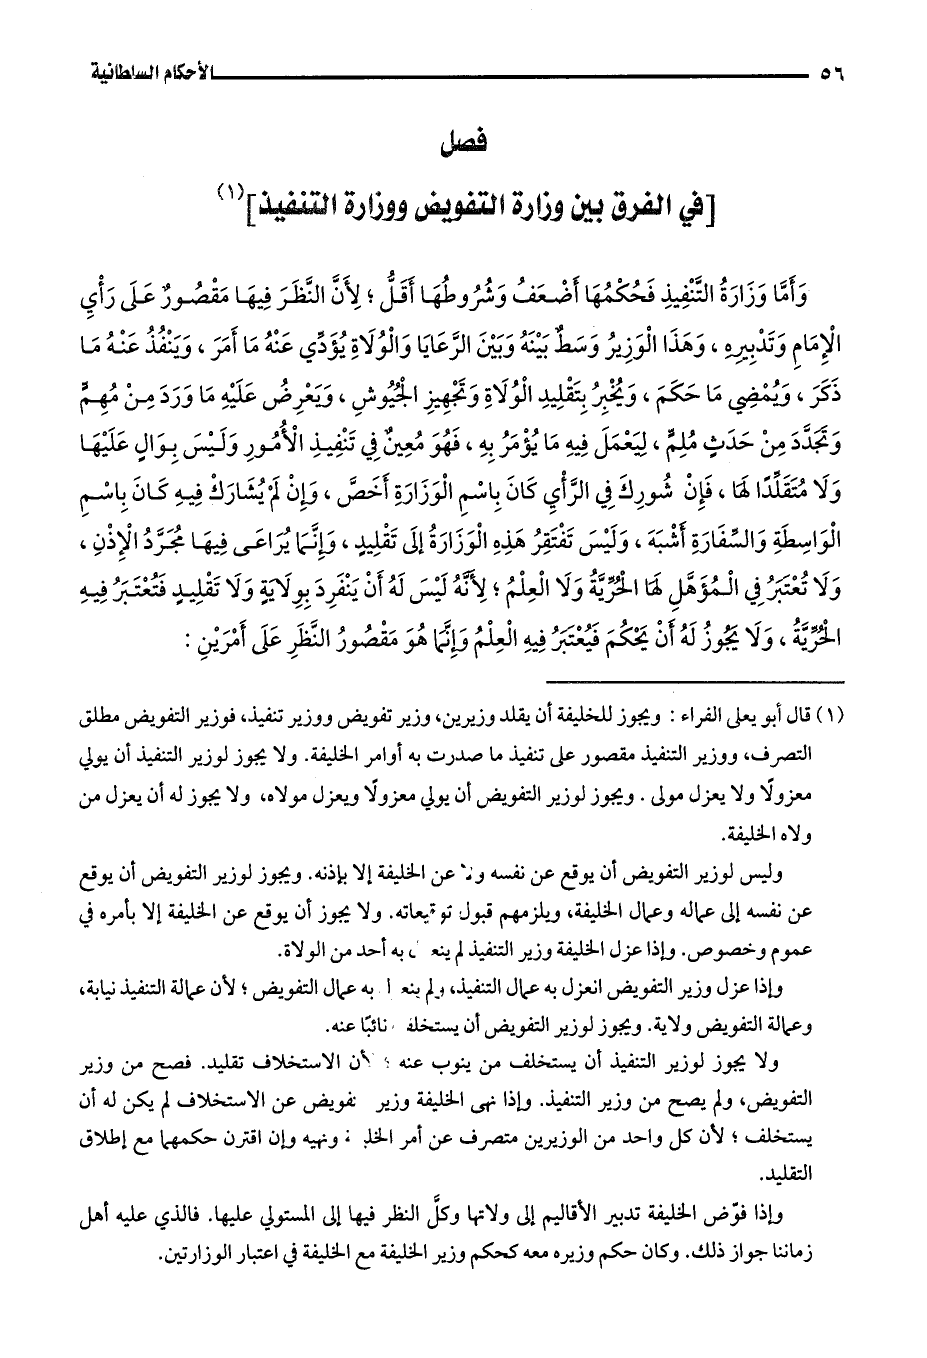 ٥٦ الأحكام السلطانية
فصل
[في الفرق بين وزارة التفويض ووزارة التنفيذ](١)
وَأَمَّا وَزَارَةُ التَّنْفِيذِ فَحُكْمُهَا أَضْعَفُ وَشُرُوطُهَا أَقَلُّ ؛ لِأَنَّ النَّظَرَ فِيهَا مَقْصُورٌ عَلَى رَأْيِ
الْإِمَامِ وَتَدْبِيرِهِ ، وَهَذَا الْوَزِيرُ وَسَطٌ بَيْنَهُ وَبَيْنَ الرَّعَايَا وَالْوُلَاةِ يُؤَدِّي عَنْهُ مَا أَمَرَ ، وَيَنْفُذُ عَنْهُ مَا
ذَكَرَ ، وَيُمْضِي مَا حَكَمَ ، وَيُخْبِرُ بِتَقْلِيدِ الْوُلَاةِ وَتَجْهِيزِ الْجُيُوشِ ، وَيَعْرِضُ عَلَيْهِ مَا وَرَدَ مِنْ مُهِمٍّ
وَتَجَدَّدَ مِنْ حَدَثٍ مُلِمٍّ ، لِيَعْمَلَ فِيهِ مَا يُؤْمَرُ بِهِ ، فَهُوَ مُعِينٌ فِي تَنْفِيذِ الْأُمُورِ وَلَيْسَ بِوَالٍ عَلَيْهَا
وَلَا مُتَقَلِّدًا لَهَا ، فَإِنْ شُورِكَ فِي الرَّأْيِ كَانَ بِاسْمِ الْوَزَارَةِ أَخَصَّ ، وَإِنْ لَمْ يُشَارَكْ فِيهِ كَانَ بِاسْمِ
الْوَاسِطَةِ وَالسِّفَارَةِ أَشْبَهَ ، وَلَيْسَ تَفْتَقِرُ هَذِهِ الْوَزَارَةُ إلَى تَقْلِيدٍ ، وَإِنَّمَا يُرَاعَى فِيهَا مُجَرَّدُ الْإِذْنِ ،
وَلَا تُعْتَبَرُ فِي الْمُؤَهَّلِ لَهَا الْحُرِّيَّةُ وَلَا الْعِلْمُ ؛ لِأَنَّهُ لَيْسَ لَهُ أَنْ يَنْفَرِدَ بِوِلَايَةٍ وَلَا تَقْلِيدٍ فَتُعْتَبَرُ فِيهِ
الْحُرِّيَّةُ ، وَلَا يَجُوزُ لَهُ أَنْ يَحْكُمَ فَيُعْتَبَرُ فِيهِ الْعِلْمُ وَإِنَّمَا هُوَ مَقْصُورُ النَّظَرِ عَلَى أَمْرَيْنِ :
(١) قال أبو يعلى الفراء : ويجوز للخليفة أن يقلد وزيرين، وزير تفويض ووزير تنفيذ، فوزير التفويض مطلق
التصرف، ووزير التنفيذ مقصور على تنفيذ ما صدرت به أوامر الخليفة. ولا يجوز لوزير التنفيذ أن يولي
معزولًا ولا يعزل مولى . ويجوز لوزير التفويض أن يولي معزولًا ويعزل مولاه، ولا يجوز له أن يعزل من
ولاه الخليفة.
وليس لوزير التفويض أن يوقع عن نفسه ولا عن الخليفة إلا بإذنه. ويجوز لوزير التفويض أن يوقع
عن نفسه إلى عماله وعمال الخليفة، ويلزمهم قبول توقيعاته. ولا يجوز أن يوقع عن الخليفة إلا بأمره في
عموم وخصوص. وإذا عزل الخليفة وزير التنفيذ لم ينعزل به أحد من الولاة.
وإذا عزل وزير التفويض انعزل به عمال التنفيذ، ولم ينعزل به عمال التفويض ؛ لأن عمالة التنفيذ نيابة،
وعمالة التفويض ولاية. ويجوز لوزير التفويض أن يستخلف نائبًا عنه.
ولا يجوز لوزير التنفيذ أن يستخلف من ينوب عنه ؛ لأن الاستخلاف تقليد. فصح من وزير
التفويض، ولم يصح من وزير التنفيذ. وإذا نهى الخليفة وزير التفويض عن الاستخلاف لم يكن له أن
يستخلف ؛ لأن كل واحد من الوزيرين متصرف عن أمر الخليفة ونهيه وإن اقترن حكمهما مع إطلاق
التقليد.
وإذا فوّض الخليفة تدبير الأقاليم إلى ولاتها وكلَّ النظر فيها إلى المستولي عليها. فالذي عليه أهل
زماننا جواز ذلك. وكان حكم وزيره معه كحكم وزير الخليفة مع الخليفة في اعتبار الوزارتين.